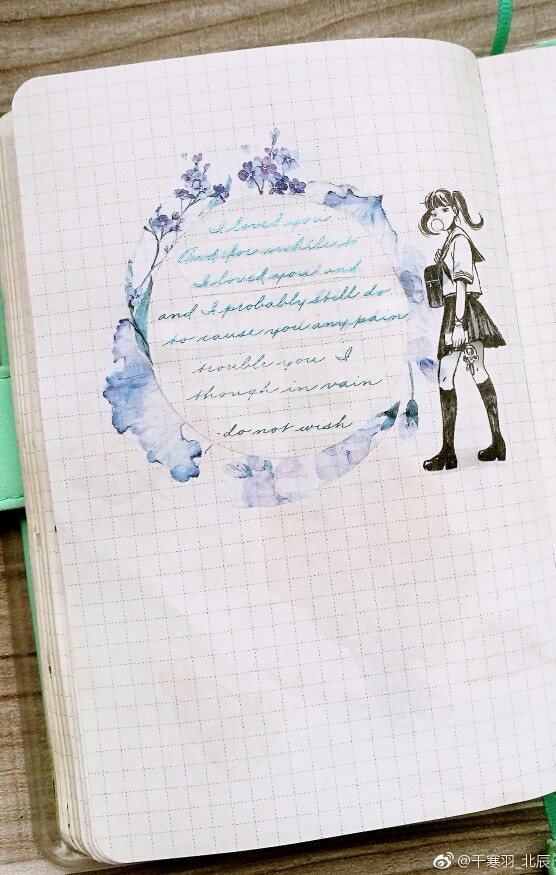 I loved you
And for awhile to
I loved you and
and I probably still do
to cause you any pain
trouble you I
though in vain
do not wish
@千寒羽_北辰